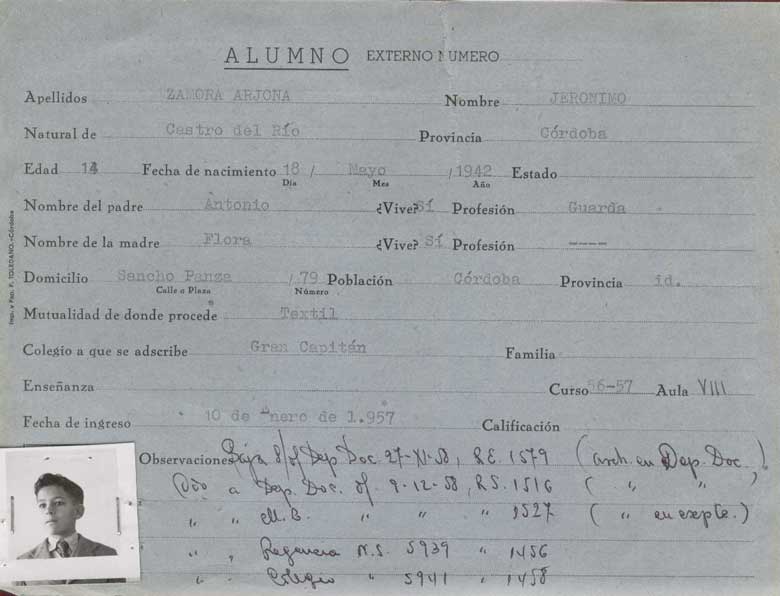 ALUMNO EXTERNO NUMERO
Apellidos ZAMORA ARJONA Nombre JERONIMO
Natural de Castro del Río Provincia Córdoba
Edad 14 Fecha de nacimiento 18 / Mayo / 1942 Estado
Día Mes Año
Nombre del padre Antonio ¿Vive? Sí Profesión Guarda
Nombre de la madre Flora ¿Vive? Sí Profesión ----
Domicilio Sancho Panza / 79 Población Córdoba Provincia id.
Calle o Plaza Número
Mutualidad de donde procede Textil
Colegio a que se adscribe Gran Capitán Familia
Enseñanza Curso 56-57 Aula VIII
Fecha de ingreso 10 de Enero de 1.957 Calificación
Observaciones Baja s/of Dep. Doc. 27-XI-58, R.E. 1579 (arch. en Dep. Doc.)
a Dep. Doc. of. 9-12-58, R.S. 1516 ( " " )
" " M.B. " " " 1527 ( " en expte.)
" " Regencia N.S. 5939 " 1456
" " Colegio " 5941 " 1458
Imp. y Pap. F. TOLEDANO.-Córdoba